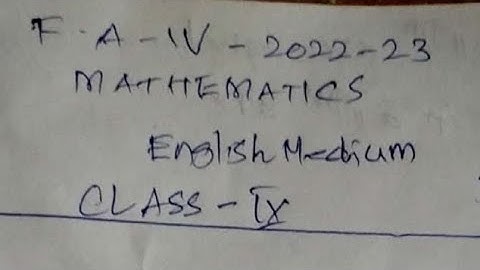 F.A-IV-2022-23
MATHEMATICS
English Medium
CLASS-IX